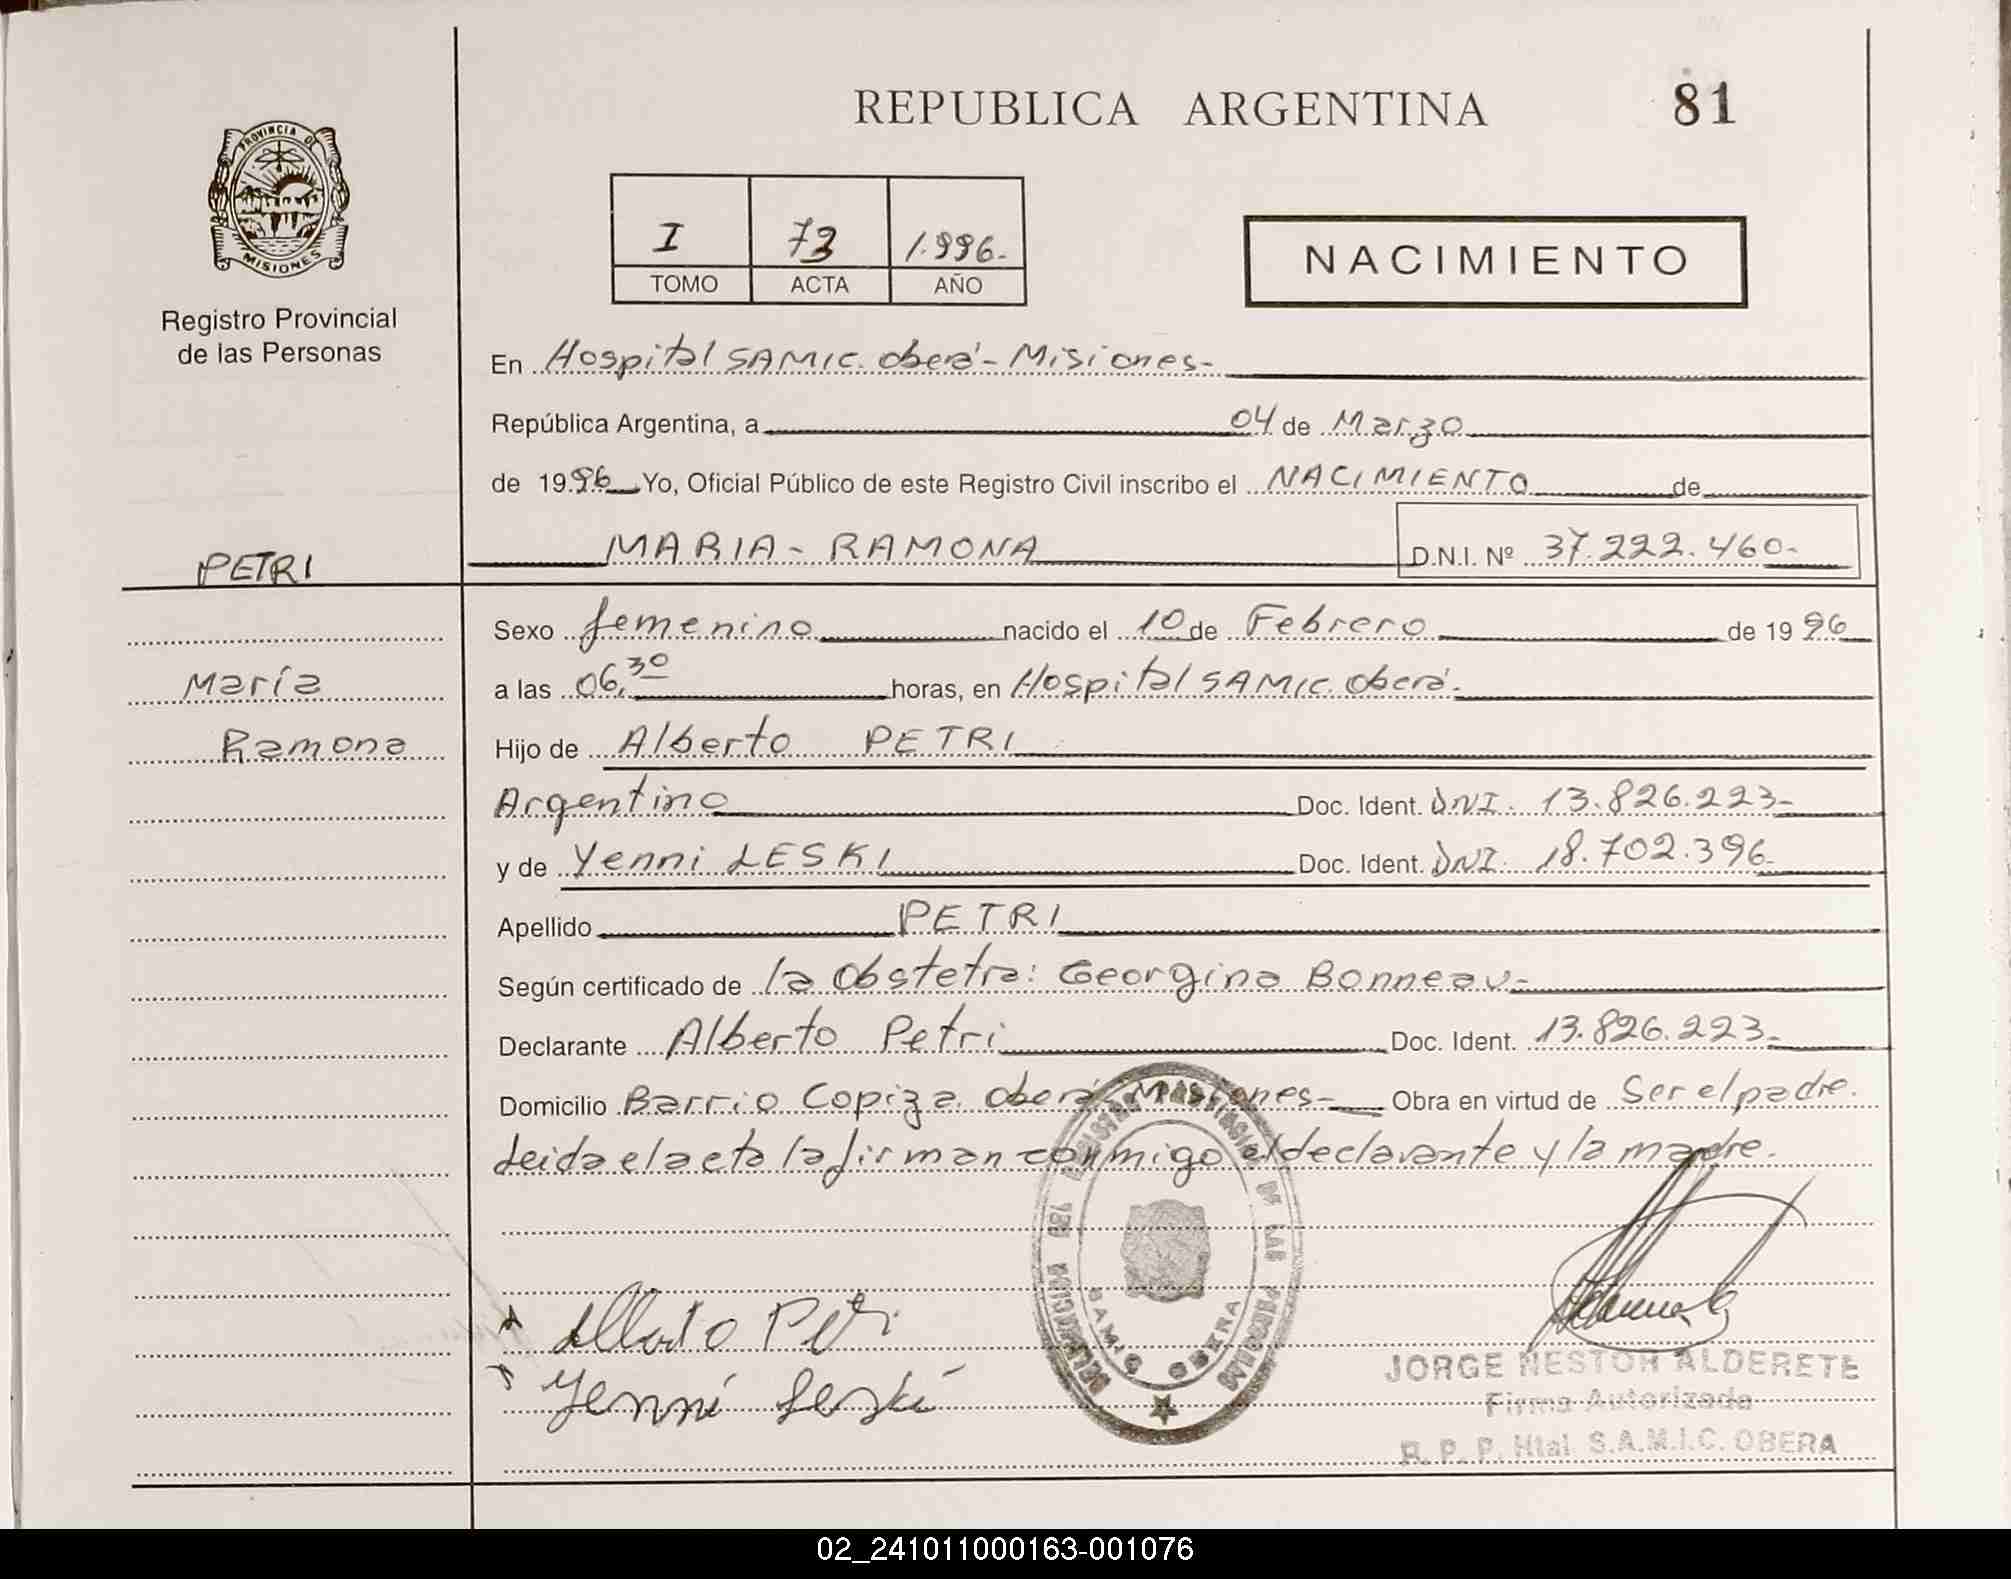 REPUBLICA ARGENTINA 81
PROVINCIA DE MISIONES
Registro Provincial
de las Personas
I 73 1.996.-
TOMO ACTA AÑO
NACIMIENTO
En Hospital SAMIC. Oberá - Misiones-
República Argentina, a 04 de Marzo
de 1996 Yo, Oficial Público de este Registro Civil inscribo el NACIMIENTO de
PETRI
María
Ramona
MARIA - RAMONA D.N.I. Nº 37.222.460-
Sexo femenino nacido el 10 de Febrero de 1996
a las 06,30 horas, en Hospital SAMIC. Oberá.
Hijo de Alberto PETRI
Argentino Doc. Ident. DNI. 13.826.223-
y de Yenni LESKI Doc. Ident. DNI. 18.702.396-
Apellido PETRI
Según certificado de la Obstetra: Georgina Bonneau-
Declarante Alberto Petri Doc. Ident. 13.826.223-
Domicilio Barrio Copiza Oberá Misiones- Obra en virtud de Ser el padre.
Leida el acta la firman conmigo el declarante y la madre.
Alberto Petri
Yenni Leski
DELEGACION DEL REGISTRO PROVINCIAL DE LAS PERSONAS
SAMIC OBERA
JORGE NESTOR ALDERETE
Firma Autorizada
R. P. P. Htal. S.A.M.I.C. OBERA
02_241011000163-001076